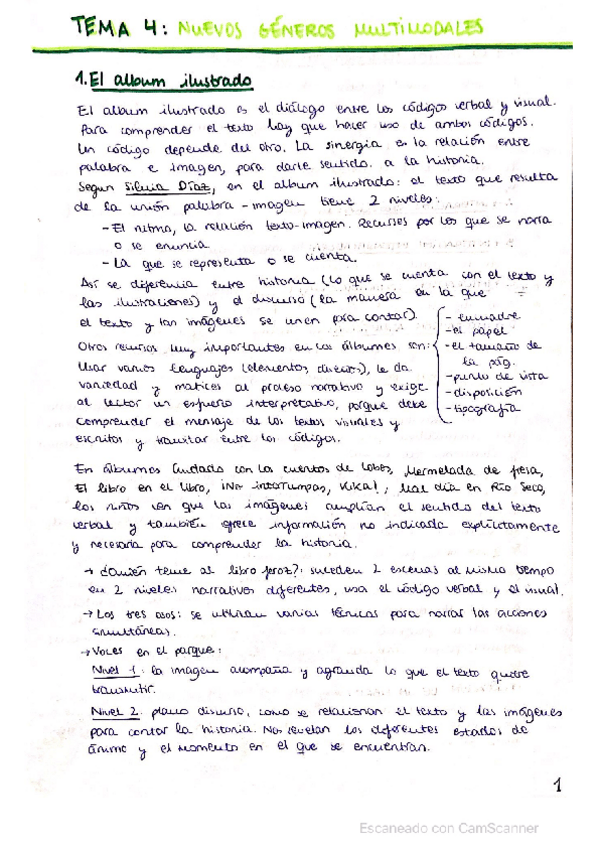 TEMA 4: NUEVOS GÉNEROS MULTIMODALES
1. El album ilustrado
El album ilustrado es el diálogo entre los códigos verbal y visual.
Para comprender el texto hay que hacer uso de ambos códigos.
Un código depende del otro. La sinergia es la relación entre
palabra e imagen, para darle sentido a la historia.
Segun Silvia Díaz, en el album ilustrado: el texto que resulta
de la unión palabra-imagen tiene 2 niveles:
- El ritmo, la relación texto-imagen. Recursos por los que se narra
o se enuncia.
- La que se representa o se cuenta.
Así se diferencia entre historia (lo que se cuenta con el texto y
las ilustraciones) y el discurso (la manera en la que
el texto y las imágenes se unen para contar).
Otros recursos muy importantes en los álbumes son:
- encuadre
- el papel
- el tamaño de
la pág.
- punto de vista
- disposición
- tipografía
Usar varios lenguajes (elementos, discursos), le da
variedad y matices al proceso narrativo y exige
al lector un esfuerzo interpretativo, porque debe
comprender el mensaje de los textos visuales y
escritos y transitar entre los códigos.
En álbumes Cuidado con los cuentos de lobos, Mermelada de fresa,
El libro en el libro, ¡No intoTumpas, Kika!, Mal día en Río Seco,
los niños ven que las imágenes amplían el sentido del texto
verbal y también ofrece información no indicada explícitamente
y necesaria para comprender la historia.
→ ¿Quién teme al libro feroz?: suceden 2 escenas al mismo tiempo
en 2 niveles narrativos diferentes, usa el código verbal y el visual.
→ Los tres osos: se utilizan varias técnicas para narrar las acciones
simultáneas.
→ Voces en el parque:
Nivel 1: la imagen acompaña y agranda lo que el texto quiere
transmitir.
Nivel 2: plano discurso, como se relacionan el texto y las imágenes
para contar la historia. Nos revelan los diferentes estados de
ánimo y el momento en el que se encuentran.
1
Escaneado con CamScanner